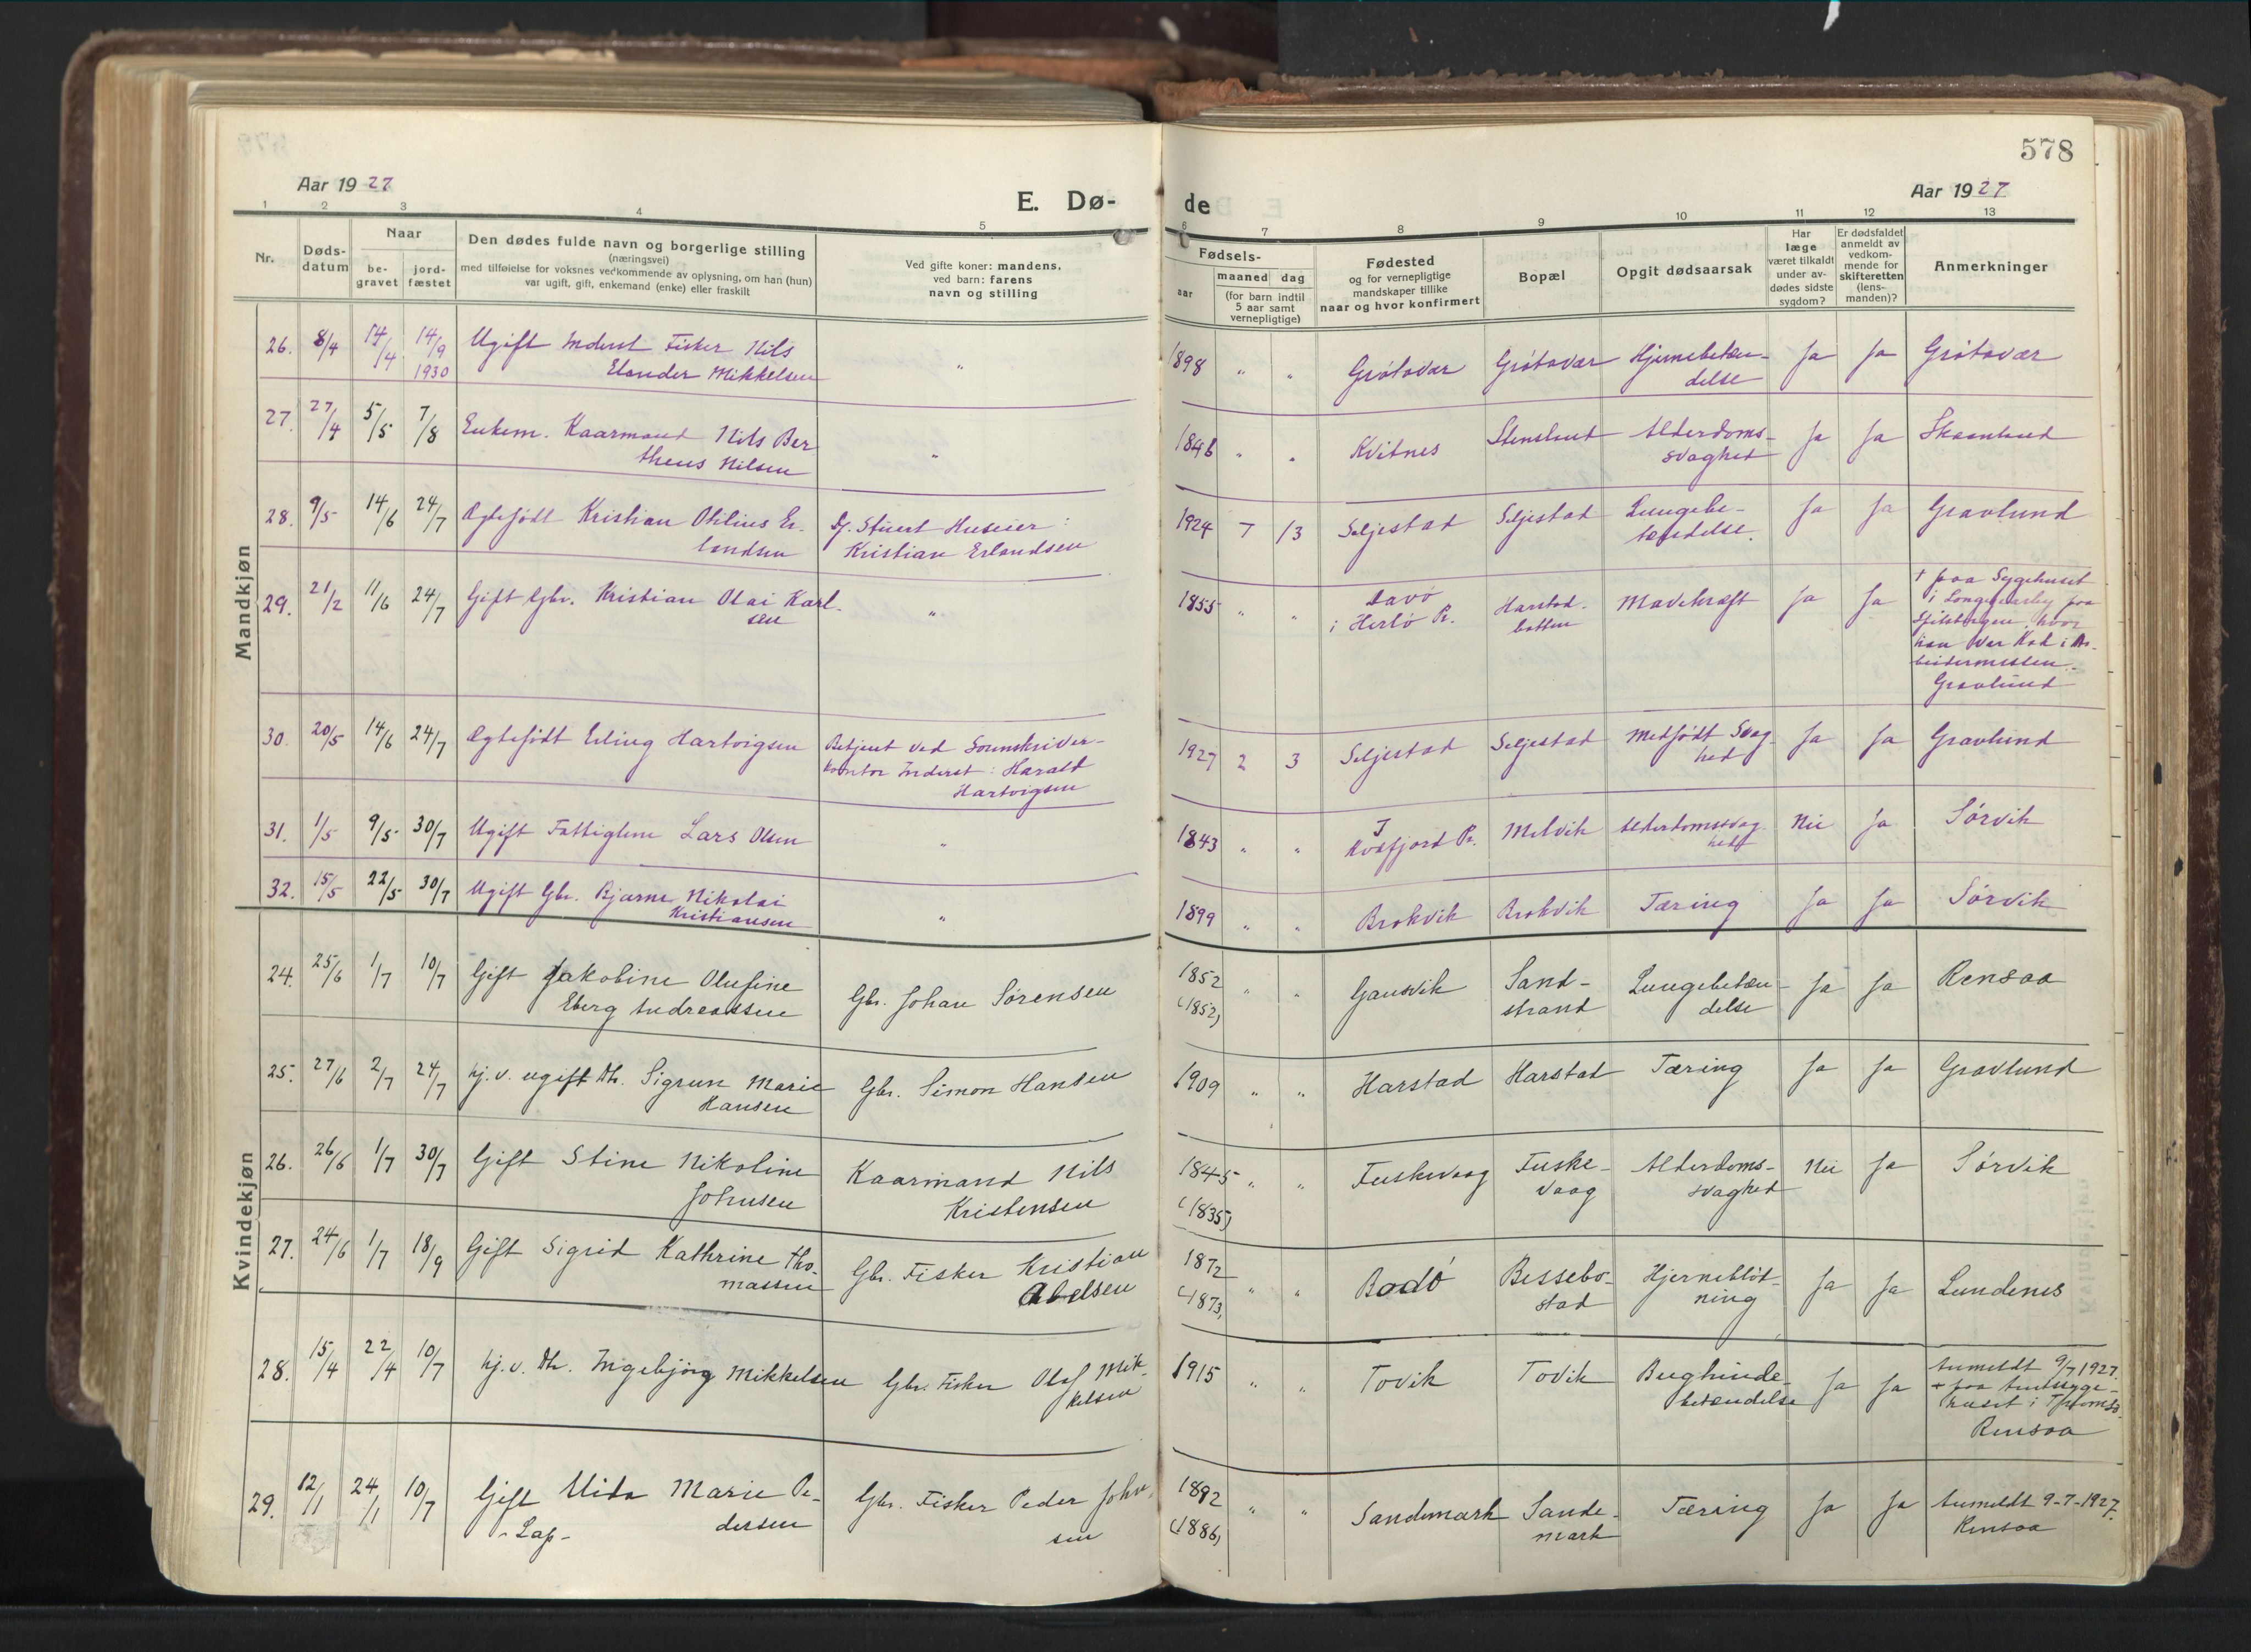 578
Aar 1927
E. Dø-
de
Aar 1927
1 2 3 4 5 6 7 8 9 10 11 12 13
Nr.
Døds-
datum
Naar
be-
gravet
jord-
fæstet
Den dødes fulde navn og borgerlige stilling
(næringsvei)
med tilføielse for voksnes vedkommende av oplysning, om han (hun)
var ugift, gift, enkemand (enke) eller fraskilt
Ved gifte koner: mandens,
ved barn: farens
navn og stilling
Fødsels-
aar
maaned dag
(for barn indtil
5 aar samt
vernepligtige)
Fødested
og for vernepligtige
mandskaper tillike
naar og hvor konfirmert
Bopæl
Opgit dødsaarsak
Har
læge
været tilkaldt
under av-
dødes sidste
sygdom?
Er dødsfaldet
anmeldt av
vedkom-
mende for
skifteretten
(lens-
manden)?
Anmerkninger
Mandkjøn
26. 8/4 14/4 14/9 1930 Ugift Inderst Fisker Nils
Elander Mikkelsen
" 1898 " " Grøtavær Grøtavær Hjernebetæn-
delse
Ja Ja Grøtavær
27. 27/4 5/5 7/8 Enkem. Kaarmand Nils Ber
theus Nilsen
" 1846 " " Kvitnes Stenslund Alderdoms-
svaghed
Ja Ja Skaanland
28. 9/5 14/6 24/7 Ægtefødt Kristian Otilius Er-
landsen
Dj. Stuert Huseier:
Kristian Erlandsen
1924 7 13 Seljestad Seljestad Lungebe-
tændelse.
Ja Ja Gravlund
29. 21/2 11/6 24/7 Gift Gbr. Kristian Olai Karl-
sen
" 1855 " "
i Herlø P.
Harstad-
botten
Mavekræft Ja Ja
+ paa Sygehuset
i Longyearby paa
Spitsbergen, hvor
han var Kok i Ar-
beidermessen.
Gravlund
30. 20/5 14/6 24/7 Ægtefødt Erling Hartvigsen
Betjent ved Sorenskriver-
kontor Inderst: Harald
Hartvigsen
1927 2 3 Seljestad Seljestad Medfødt Svag-
hed
Ja Ja Gravlund
31. 1/5 9/5 30/7 Ugift Fattiglem Lars Olsen
" 1843 " " I
Kvæfjord P.
Melvik Alderdomssvag
hed
Nei Ja Sørvik
32. 15/5 22/5 30/7 Ugift Gbr. Bjarne Nikolai
Kristiansen
" 1899 " " Brokvik Brokvik Tæring Ja Ja Sørvik
Kvindekjøn
24. 25/6 1/7 10/7 Gift Jakobine Olufine
Eberg Andreassen
Gbr. Johan Sørensen
1852
(1852)
" " Gausvik Sand-
strand
Lungebetæn-
delse
Ja Ja Rensaa
25. 27/6 2/7 24/7 hj.v. ugift Dtr. Sigrun Marie
Hansen
Gbr. Simon Hansen
1909 " " Harstad Harstad Tæring Ja Ja Gravlund
26. 26/6 1/7 30/7 Gift Stine Nikoline
Johnsen
Kaarmand Nils
Kristensen
1845
(1835)
" " Fuskevaag Fuske-
vaag
Alderdoms-
svaghed
Nei Ja Sørvik
27. 24/6 1/7 18/9 Gift Sigrid Kathrine Tho-
massen
Gbr. Fisker Kristian
Abelsen
1872
(1873)
" " Bodø Bessebo-
stad
Hjerneblød-
ning
Ja Ja Lundenes
28. 15/4 22/4 10/7 hj.v. Dtr. Ingebjørg Mikkelsen
Gbr. Fisker Olaf Mik-
kelsen
1915 " " Tovik Tovik Bughinde-
betændelse
Ja Ja
Anmeldt 9/7 1927.
+ paa Amtssyge-
huset i Tromsø.
Rensaa
29. 12/1 24/1 10/7 Gift Marie Pe-
dersen
-Lap-
Gbr. Fisker Peder John-
sen
1892
(1886)
" " Sandemark Sande-
mark
Tæring Ja Ja Anmeldt 9-7-1927.
Rensaa